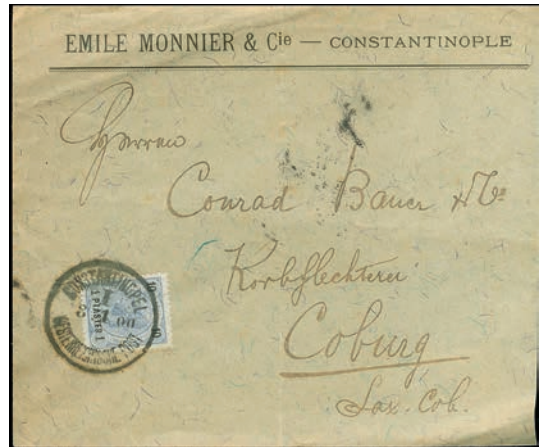 EMILE MONNIER & Cie — CONSTANTINOPLE
Herren
Conrad Bauer & Co
Korbflechterei
Coburg
Sax. Cob.
CONSTANTINOPEL
1 PIASTER 1
OESTERREICHISCHE POST